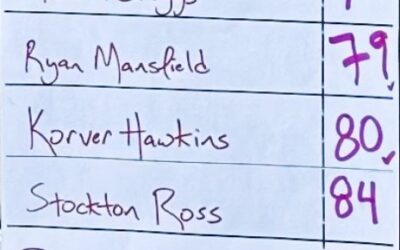 Ryan Mansfield 79
Korver Hawkins 80
Stockton Ross 84